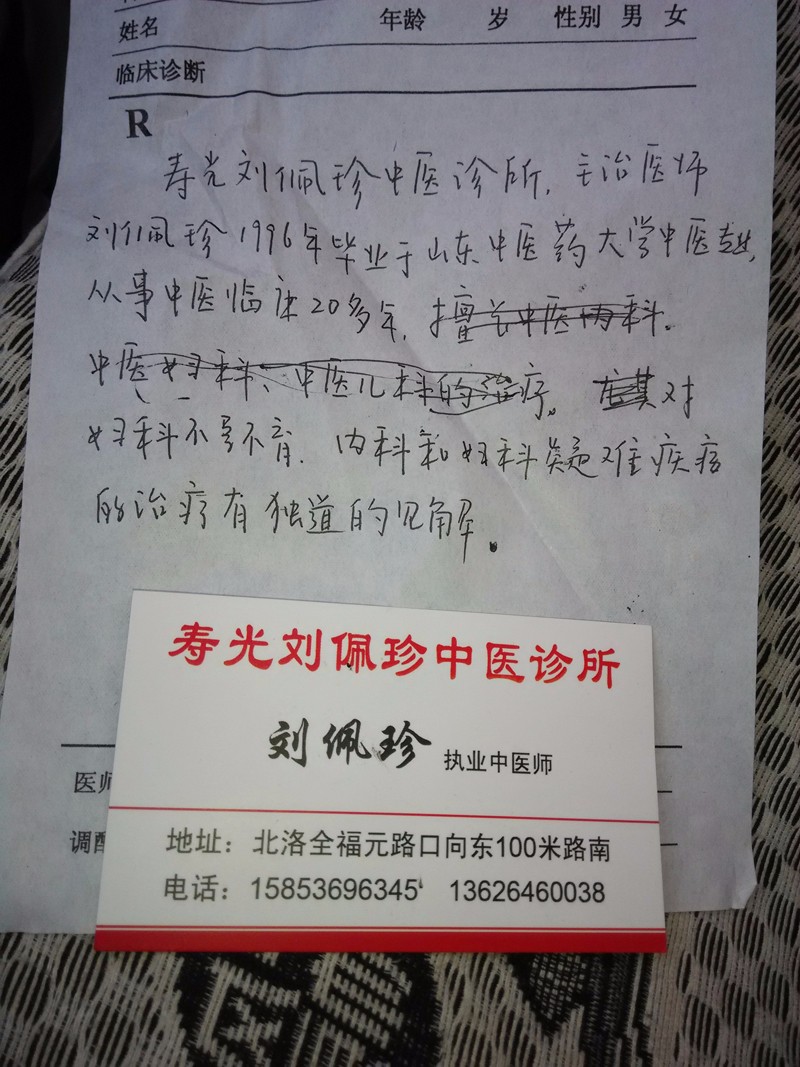 姓名 年龄 岁 性别 男 女
临床诊断
R
寿光刘佩珍中医诊所，主治医师
刘佩珍1996年毕业于山东中医药大学中医专业，
从事中医临床20多年，擅长中医内科。
中医妇科、中医儿科的治疗。尤其对
妇科不孕不育，内科和妇科疑难疾病
的治疗有独道的见解。
寿光刘佩珍中医诊所
刘佩珍 执业中医师
医师
调配
地址：北洛全福元路口向东100米路南
电话：15853696345 13626460038